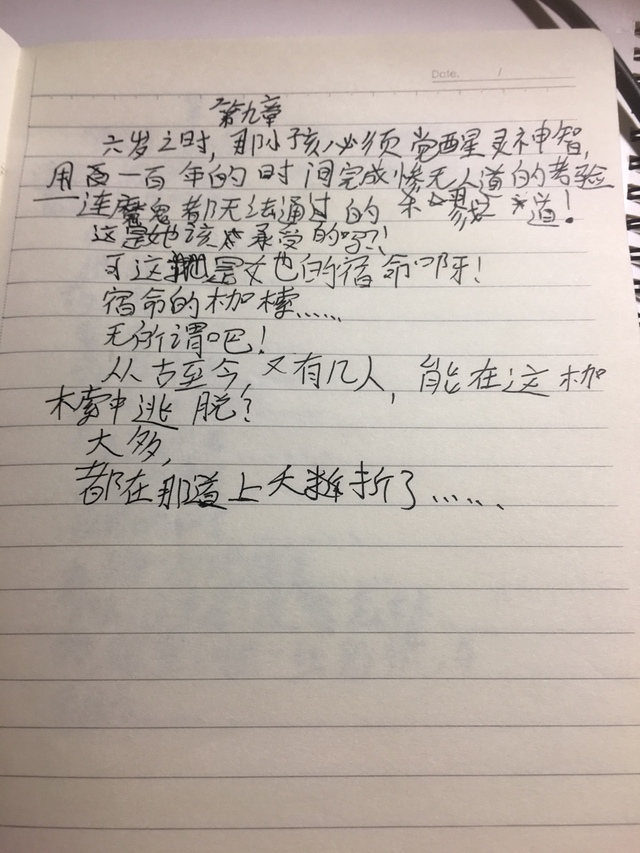 Date. /
第九章
六岁之时,那小孩必须觉醒灵神智,
用一百年的时间完成惨无人道的考验
——连魔鬼都无法通过的 道!
这是她该承受的吗?!
可这是她的宿命啊!
宿命的枷锁……
无所谓吧!
从古至今,又有几人,能在这枷
锁中逃脱?
大多,
都在那道上夭折了……